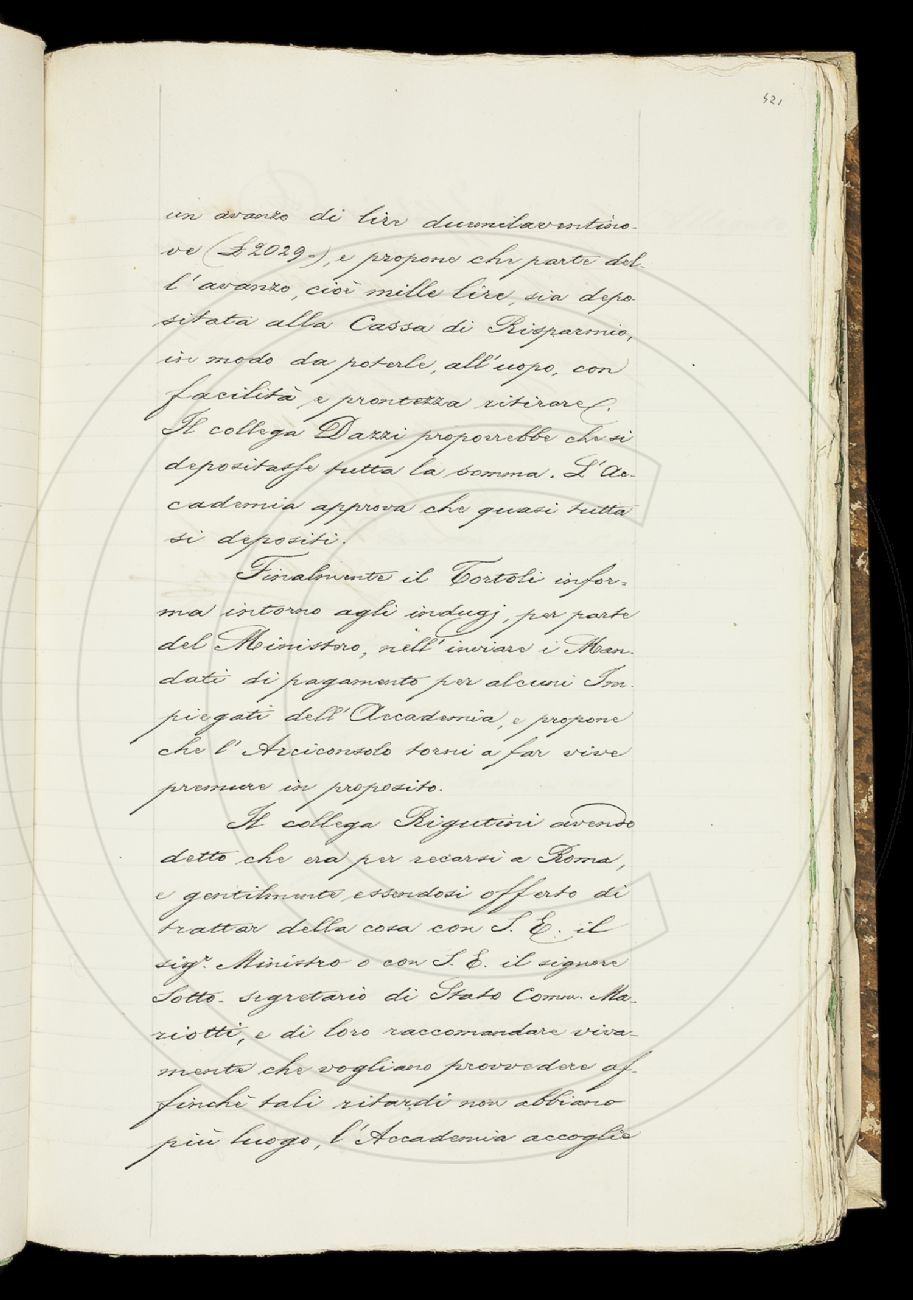 521
un avanzo di lire duemilaventino-
ve (£ 2029.-), e propone che parte del-
l'avanzo, cioè mille lire, sia depo-
sitata alla Cassa di Risparmio,
in modo da poterle, all'uopo, con
facilità e prontezza ritirare.
Il collega Dazzi proporrebbe che si
depositasse tutta la somma. L'Ac-
cademia approva che quasi tutta
si depositi.
Finalmente il Tortoli infor-
ma intorno agli indugj, per parte
del Ministro, nell'inviare i Man-
dati di pagamento per alcuni Im-
piegati dell'Accademia, e propone
che l'Arciconsolo torni a far vive
premure in proposito.
Il collega Rigutini avendo
detto che era per recarsi a Roma,
e gentilmente essendosi offerto di
trattar della cosa con S. E. il
sigr. Ministro o con S. E. il signore
Sotto-segretario di Stato Comm. Ma-
riotti, e di loro raccomandare viva-
mente che vogliano provvedere af-
finchè tali ritardi non abbiano
più luogo, l'Accademia accoglie